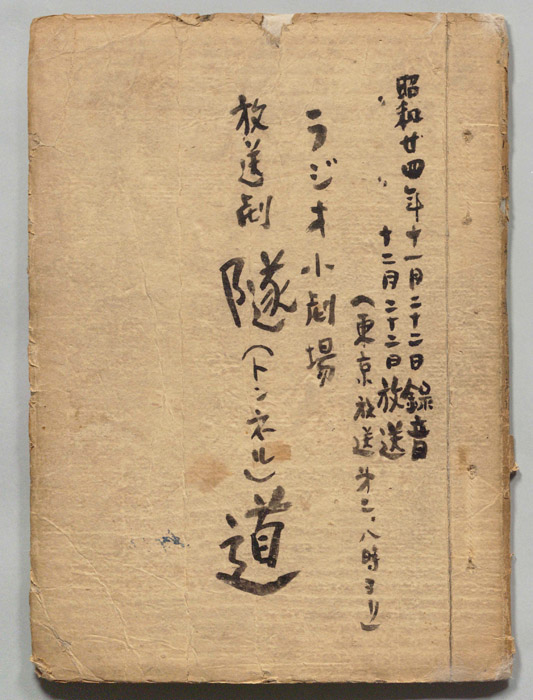 昭和廿四年十一月二十二日 録音
〃 〃 十二月二十二日 放送
(東京放送第二、八時ヨリ)
ラジオ小劇場
放送劇 隧(トンネル)道